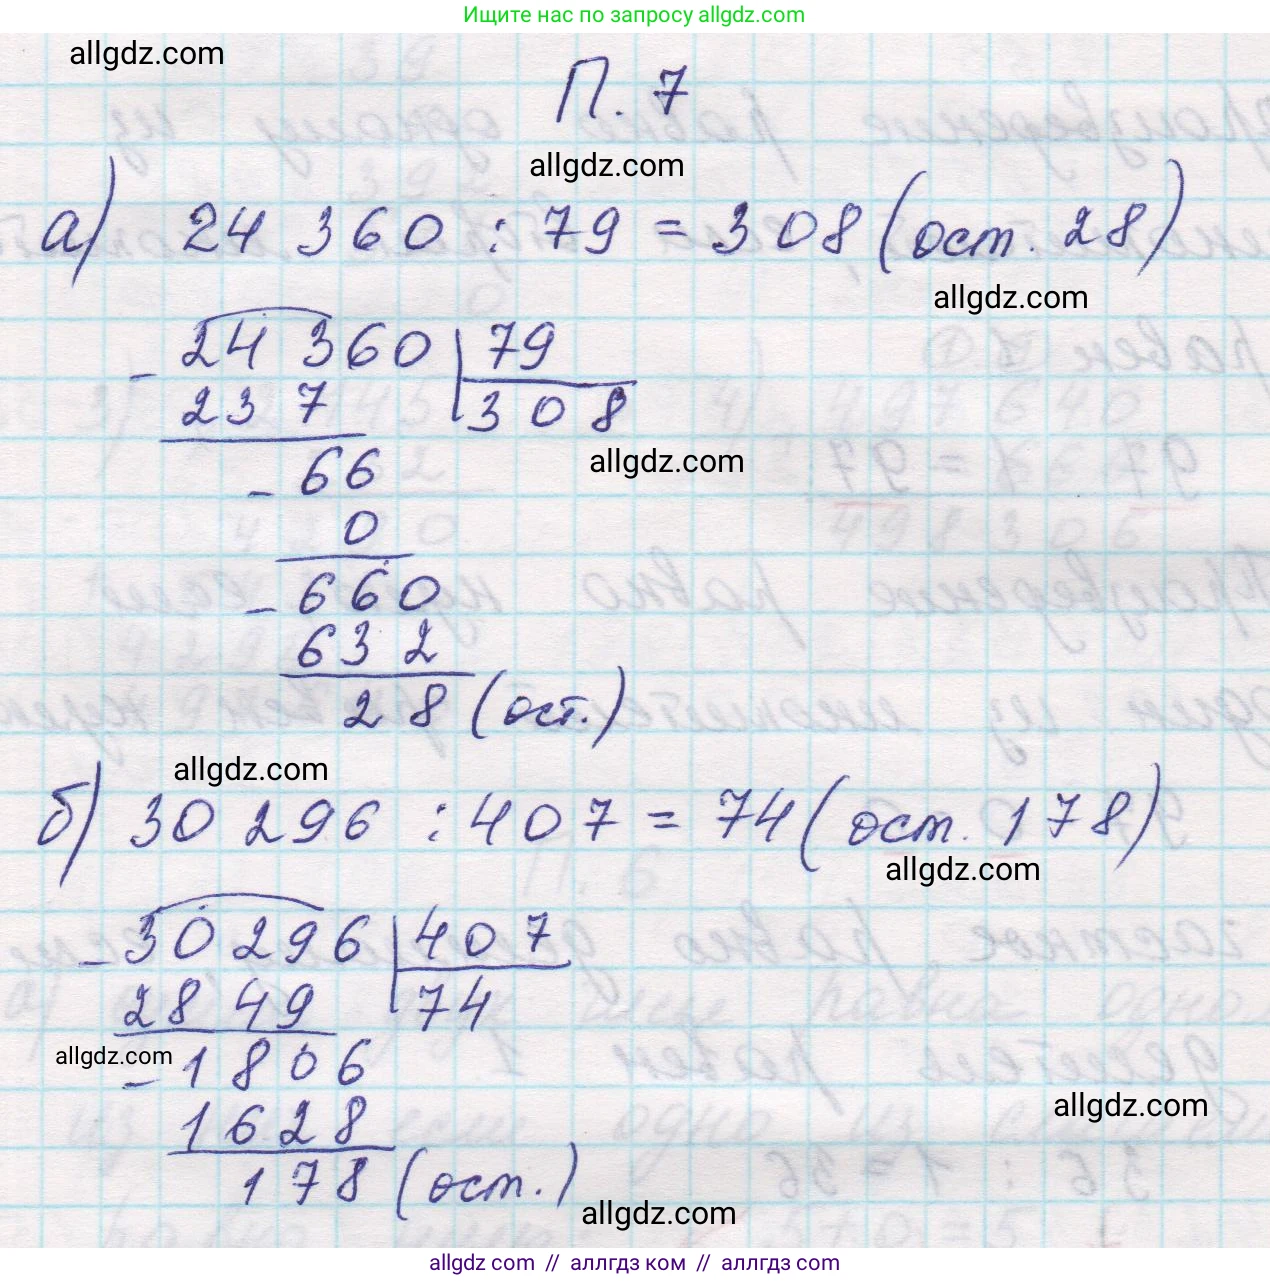 Ищите нас по запросу allgdz.com
allgdz.com
П. 7
allgdz.com
а) 24 360 : 79 = 308 (ост. 28)
allgdz.com
- 24 360 79
237 308
allgdz.com
- 66
0
- 660
632
28 (ост.)
allgdz.com
б) 30 296 : 407 = 74 (ост. 178)
allgdz.com
- 30296 407
2849 74
allgdz.com
- 1806
allgdz.com
1628
178 (ост.)
allgdz.com
allgdz.com // аллгдз ком // allgdz.com